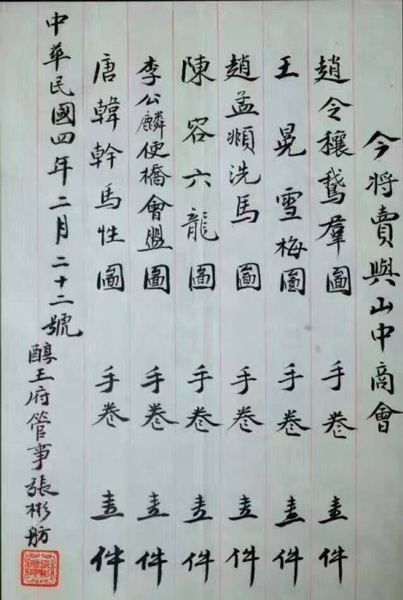 今將賣與山中商會
趙令穰鵞羣圖 手卷 壹件
王晃雪梅圖 手卷 壹件
趙孟頫洗馬圖 手卷 壹件
陳容六龍圖 手卷 壹件
李公麟便橋會盟圖 手卷 壹件
唐韓幹馬性圖 手卷 壹件
中華民國四年二月二十二號 醇王府管事張彬舫